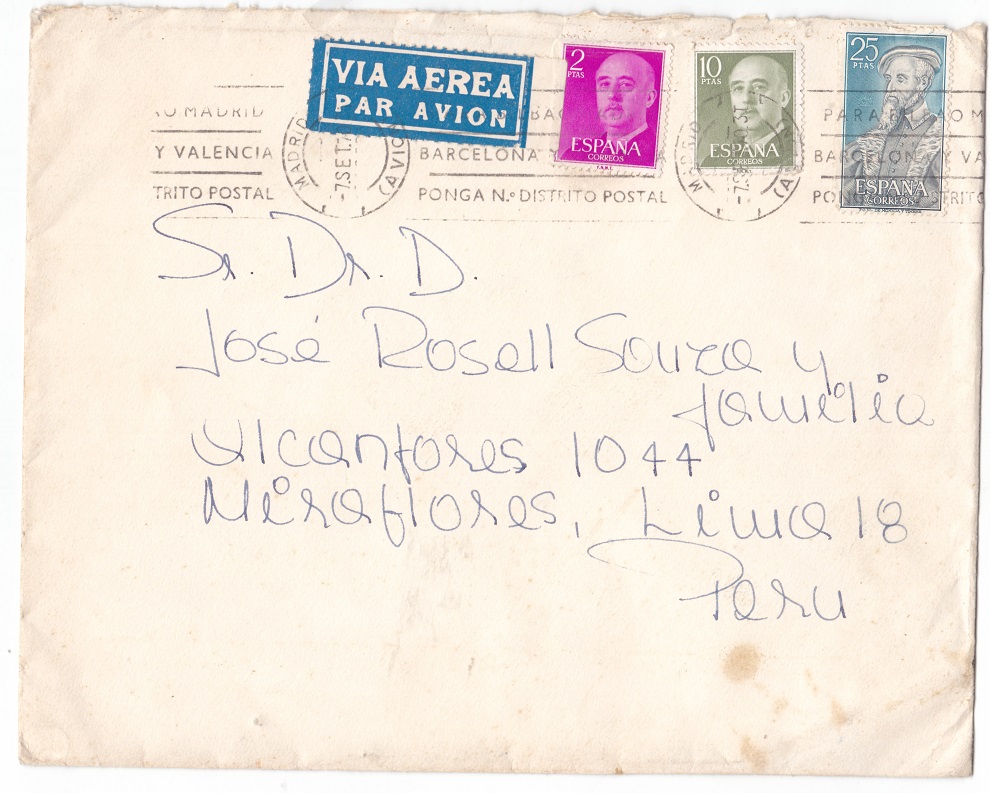 VIA AEREA
PAR AVION
2 PTAS
ESPAÑA
CORREOS
10 PTAS
ESPAÑA
CORREOS
25 PTAS
ESPAÑA
CORREOS
MADRID
Y VALENCIA
TRITO POSTAL
MADRID
-7.SET.
(AVIO
BARCELONA
PONGA N.º DISTRITO POSTAL
-7.S
PARA
BARCELONA Y VA
PO TRITO
Sr. Dr. D.
José Rosell Souza y
familia
Alcanfores 1044
Miraflores, Lima 18
Peru